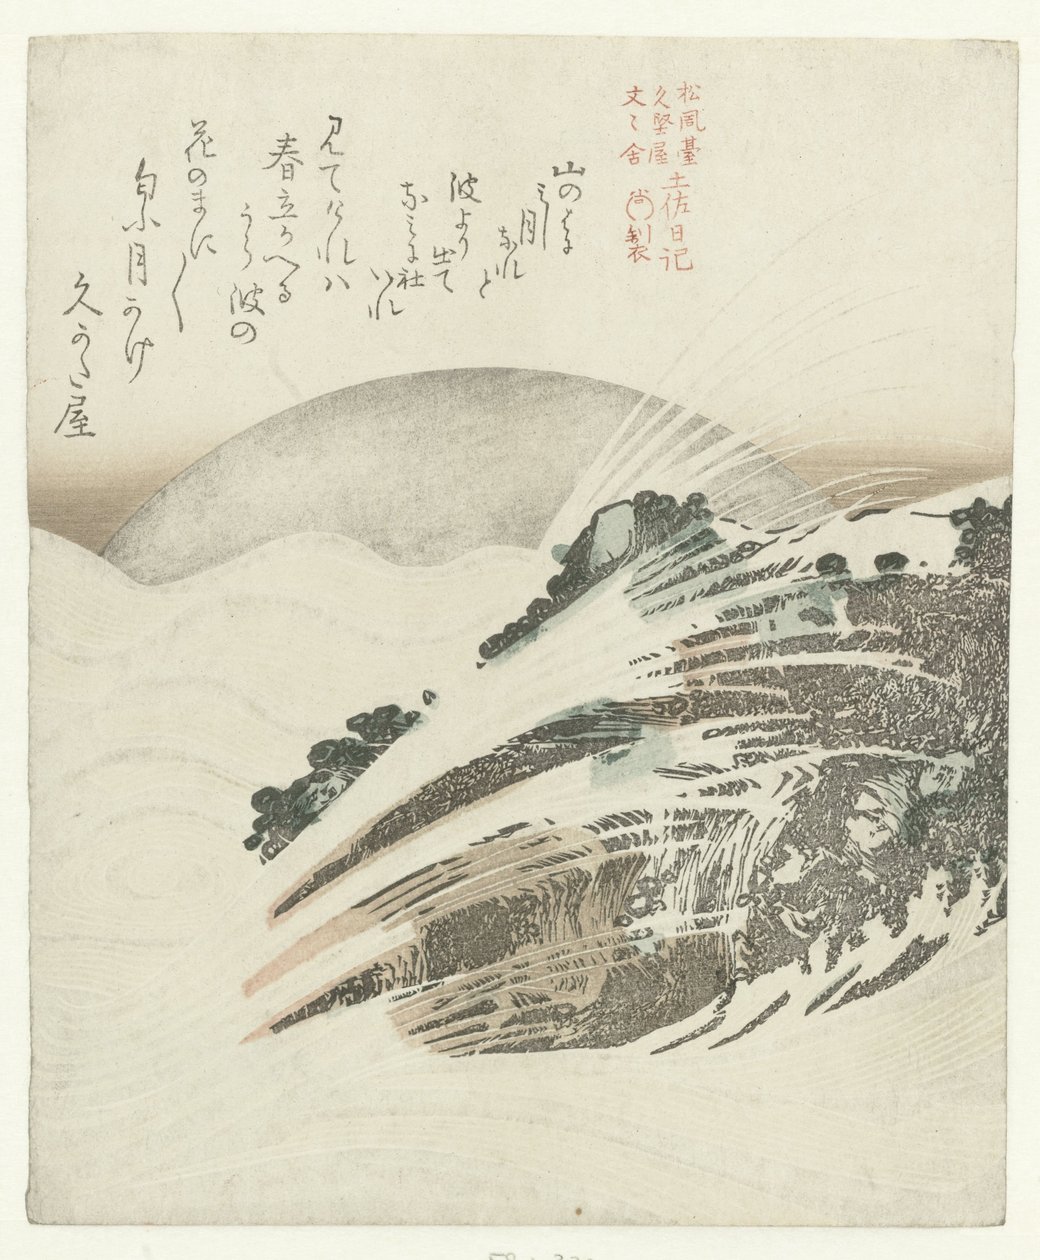 松風臺
久堅屋
土佐日記
文ゝ舎
尚製
山のはに
みし月
なれ
と
波より
出て
なみに社
いれ
見てけれハ
春立かへる
うら波の
花のまに〱
匂ふ月かけ
久かた屋